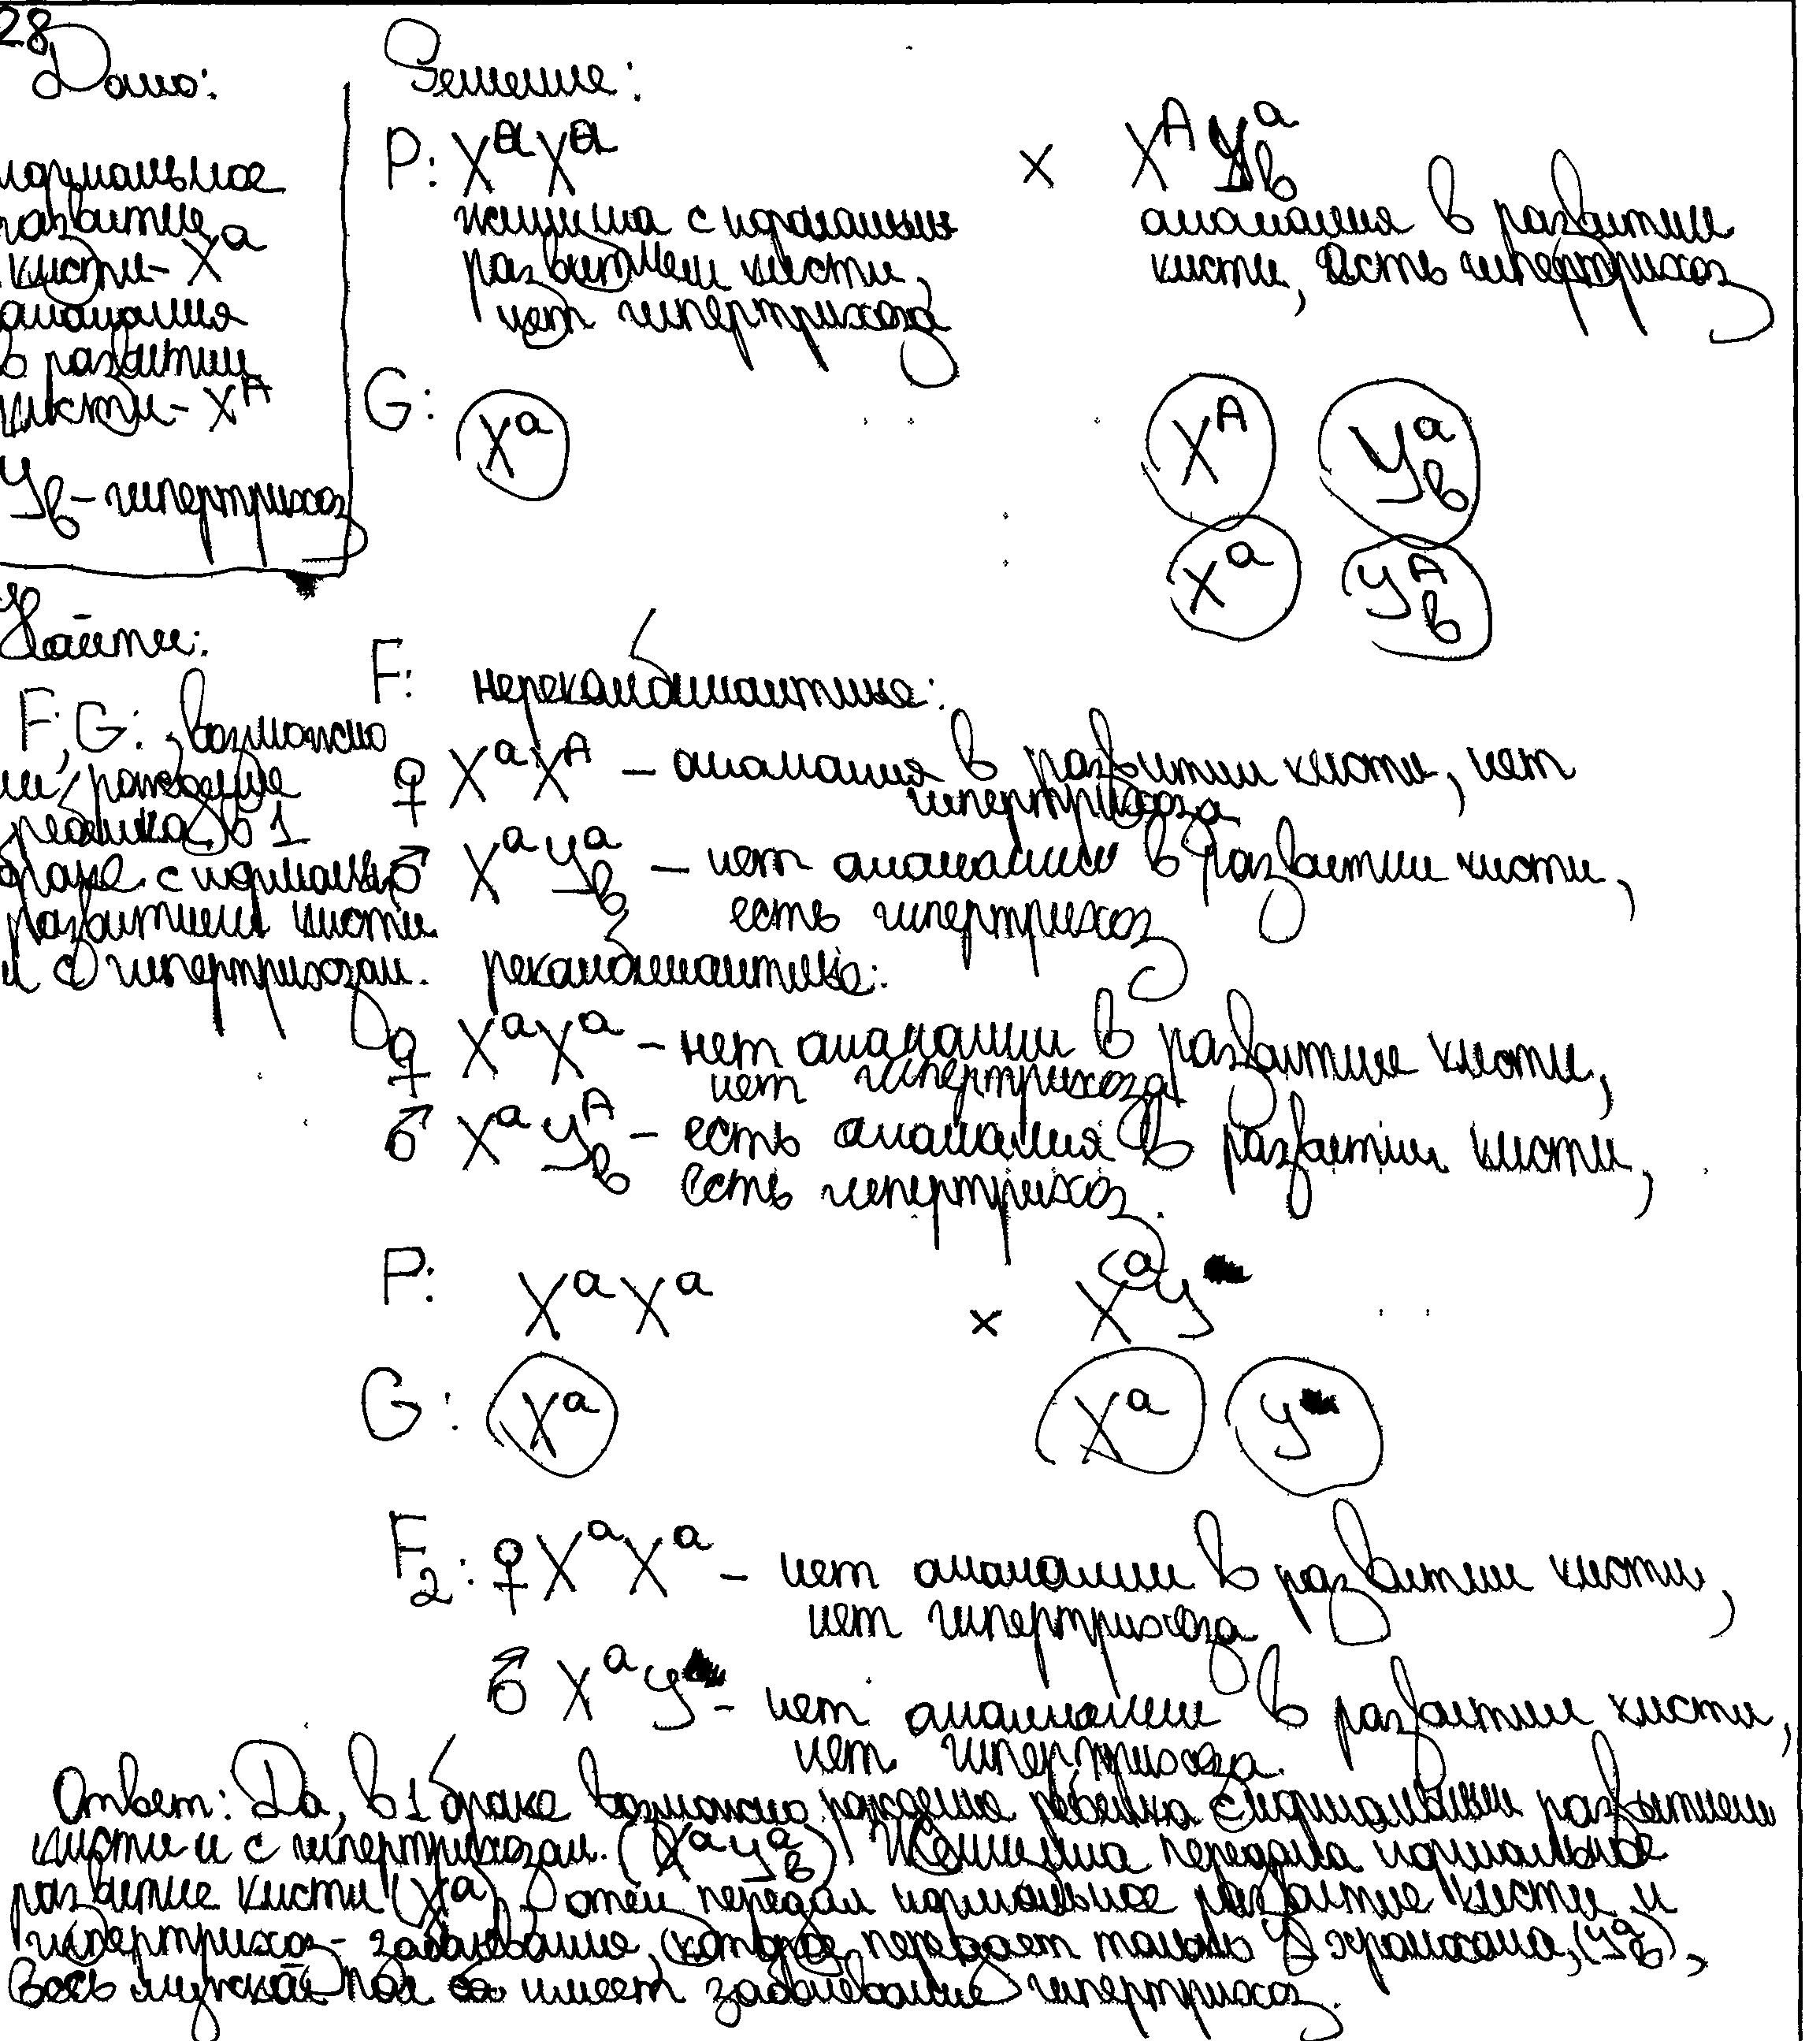 28
Дано:
нормальное
развитие
кисти - Xᵃ
аномалия
в развитии
кисти - Xᴬ
Yв - гипертрихоз
Найти:
F, G: возможно
ли рождение
ребёнка в 1
браке с нормальн
развитием кисти
и с гипертрихозом.
Решение:
P: XᵃXᵃ x XᴬYᵃв
женщина с нормальным
развитием кисти,
нет гипертрихоза
аномалия в развитии
кисти, есть гипертрихоз
G: Xᵃ Xᴬ Yᵃв
Xᵃ Yᴬв
F: нерекомбинантные:
♀ XᵃXᴬ - аномалия в развитии кисти, нет
гипертрихоза
♂ XᵃYᵃв - нет аномалии в развитии кисти,
есть гипертрихоз
рекомбинантные:
♀ XᵃXᵃ - нет аномалии в развитие кисти,
нет гипертрихоза
♂ XᵃYᴬв - есть аномалия в развитии кисти,
есть гипертрихоз.
P: XᵃXᵃ x XᵃY
G: Xᵃ Xᵃ Y
F₂: ♀ XᵃXᵃ - нет аномалии в развитии кисти,
нет гипертрихоза
♂ XᵃY - нет аномалии в развитии кисти,
нет гипертрихоза.
Ответ: Да, в 1 браке возможно рождение ребёнка с нормальным развитием
кисти и с гипертрихозом. (XᵃYᵃв) Женщина передала нормальное
развитие кисти (Xᵃ), отец передал нормальное развитие кисти и
гипертрихоз - заболевание, которое передает только Y хромосома, (Yᵃв),
весь мужской пол имеет заболевание гипертрихоз.